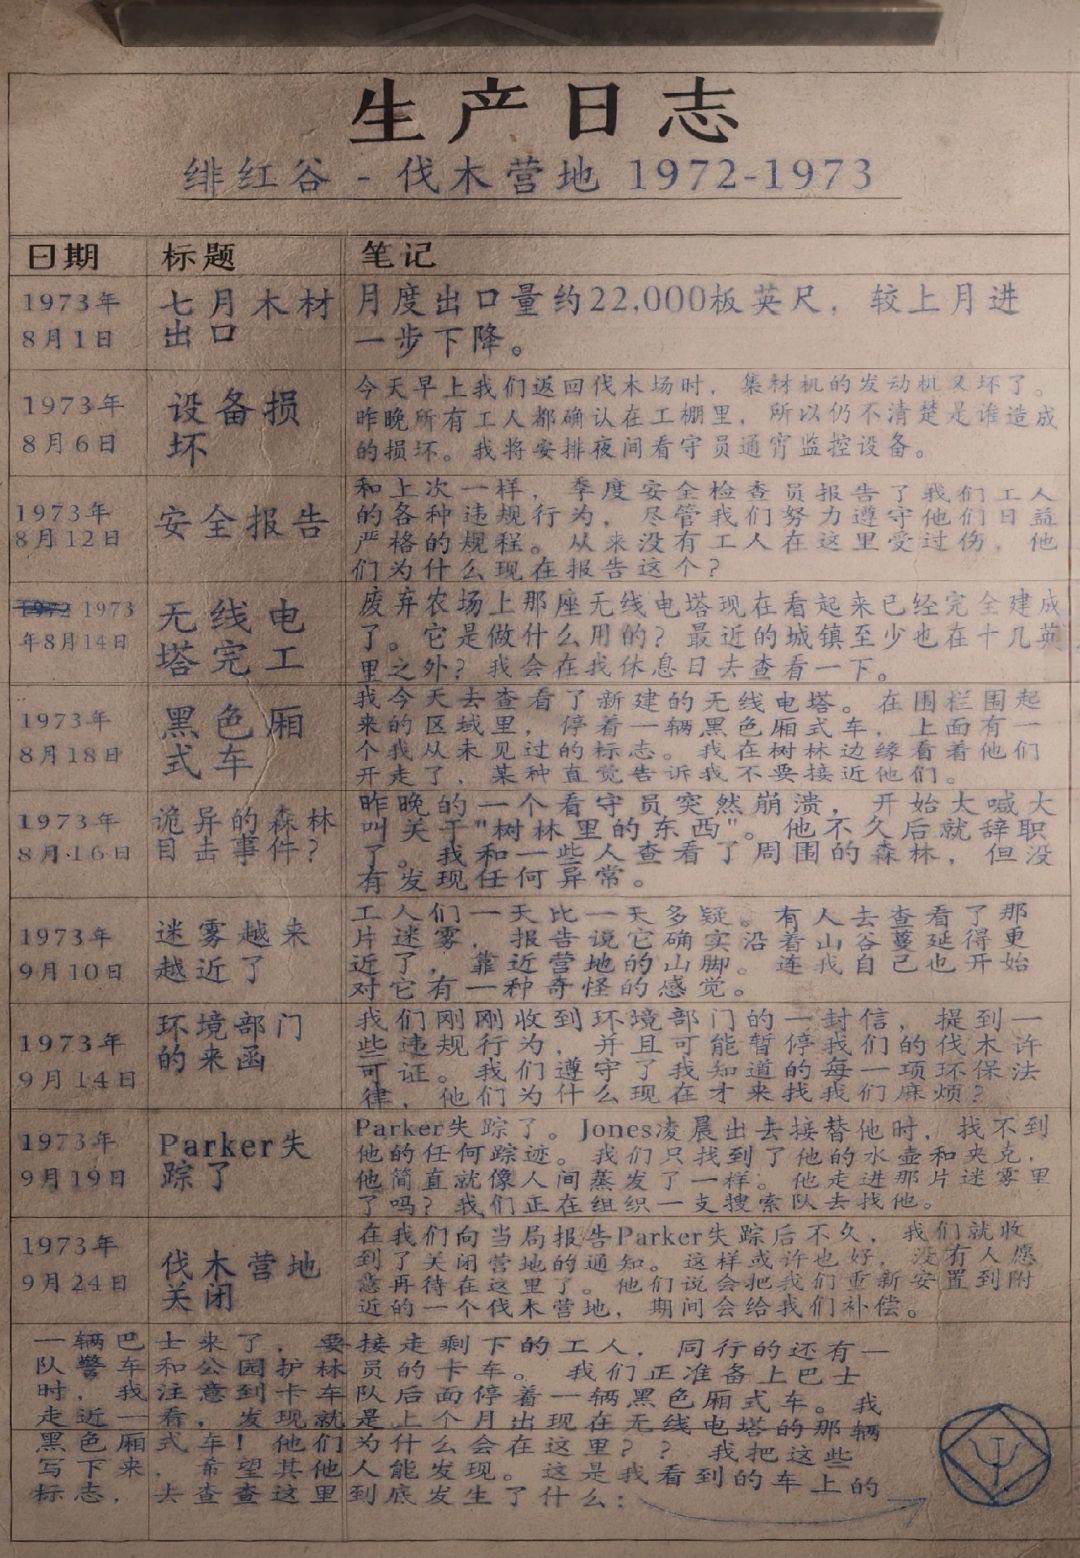 生产日志
绯红谷 - 伐木营地 1972-1973
日期 标题 笔记
1973年
8月1日
七月木材
出口
月度出口量约22,000板英尺，较上月进
一步下降。
1973年
8月6日
设备损
坏
今天早上我们返回伐木场时，集材机的发动机又坏了。
昨晚所有工人都确认在工棚里，所以仍不清楚是谁造成
的损坏。我将安排夜间看守员通宵监控设备。
1973年
8月12日
安全报告
和上次一样，季度安全检查员报告了我们工人
的各种违规行为，尽管我们努力遵守他们日益
严格的规程。从来没有工人在这里受过伤，他
们为什么现在报告这个？
1972 1973
年8月14日
无线电
塔完工
废弃农场上那座无线电塔现在看起来已经完全建成
了。它是做什么用的？最近的城镇至少也在十几英
里之外？我会在我休息日去查看一下。
1973年
8月18日
黑色厢
式车
我今天去查看了新建的无线电塔。在围栏围起
来的区域里，停着一辆黑色厢式车，上面有一
个我从未见过的标志。我在树林边缘看着他们
开走了，某种直觉告诉我不要接近他们。
1973年
8月16日
诡异的森林
目击事件？
昨晚的一个看守员突然崩溃，开始大喊大
叫关于"树林里的东西"。他不久后就辞职
了。我和一些人查看了周围的森林，但没
有发现任何异常。
1973年
9月10日
迷雾越来
越近了
工人们一天比一天多疑。有人去查看了那
片迷雾，报告说它确实沿着山谷蔓延得更
近了，靠近营地的山脚。连我自己也开始
对它有一种奇怪的感觉。
1973年
9月14日
环境部门
的来函
我们刚刚收到环境部门的一封信，提到一
些违规行为，并且可能暂停我们的伐木许
可证。我们遵守了我知道的每一项环保法
律，他们为什么现在才来找我们麻烦？
1973年
9月19日
Parker失
踪了
Parker失踪了。Jones凌晨出去接替他时，找不到
他的任何踪迹。我们只找到了他的水壶和夹克，
他简直就像人间蒸发了一样。他走进那片迷雾里
了吗？我们正在组织一支搜索队去找他。
1973年
9月24日
伐木营地
关闭
在我们向当局报告Parker失踪后不久，我们就收
到了关闭营地的通知。这样或许也好，没有人愿
意再待在这里了。他们说会把我们重新安置到附
近的一个伐木营地，期间会给我们补偿。
一辆巴士来了，要接走剩下的工人，同行的还有一
队警车和公园护林员的卡车。我们正准备上巴士
时，我注意到卡车队后面停着一辆黑色厢式车。我
走近一看，发现就是上个月出现在无线电塔的那辆
黑色厢式车！他们为什么会在这里？？我把这些
写下来，希望其他人能发现。这是我看到的车上的
标志，去查查这里到底发生了什么：